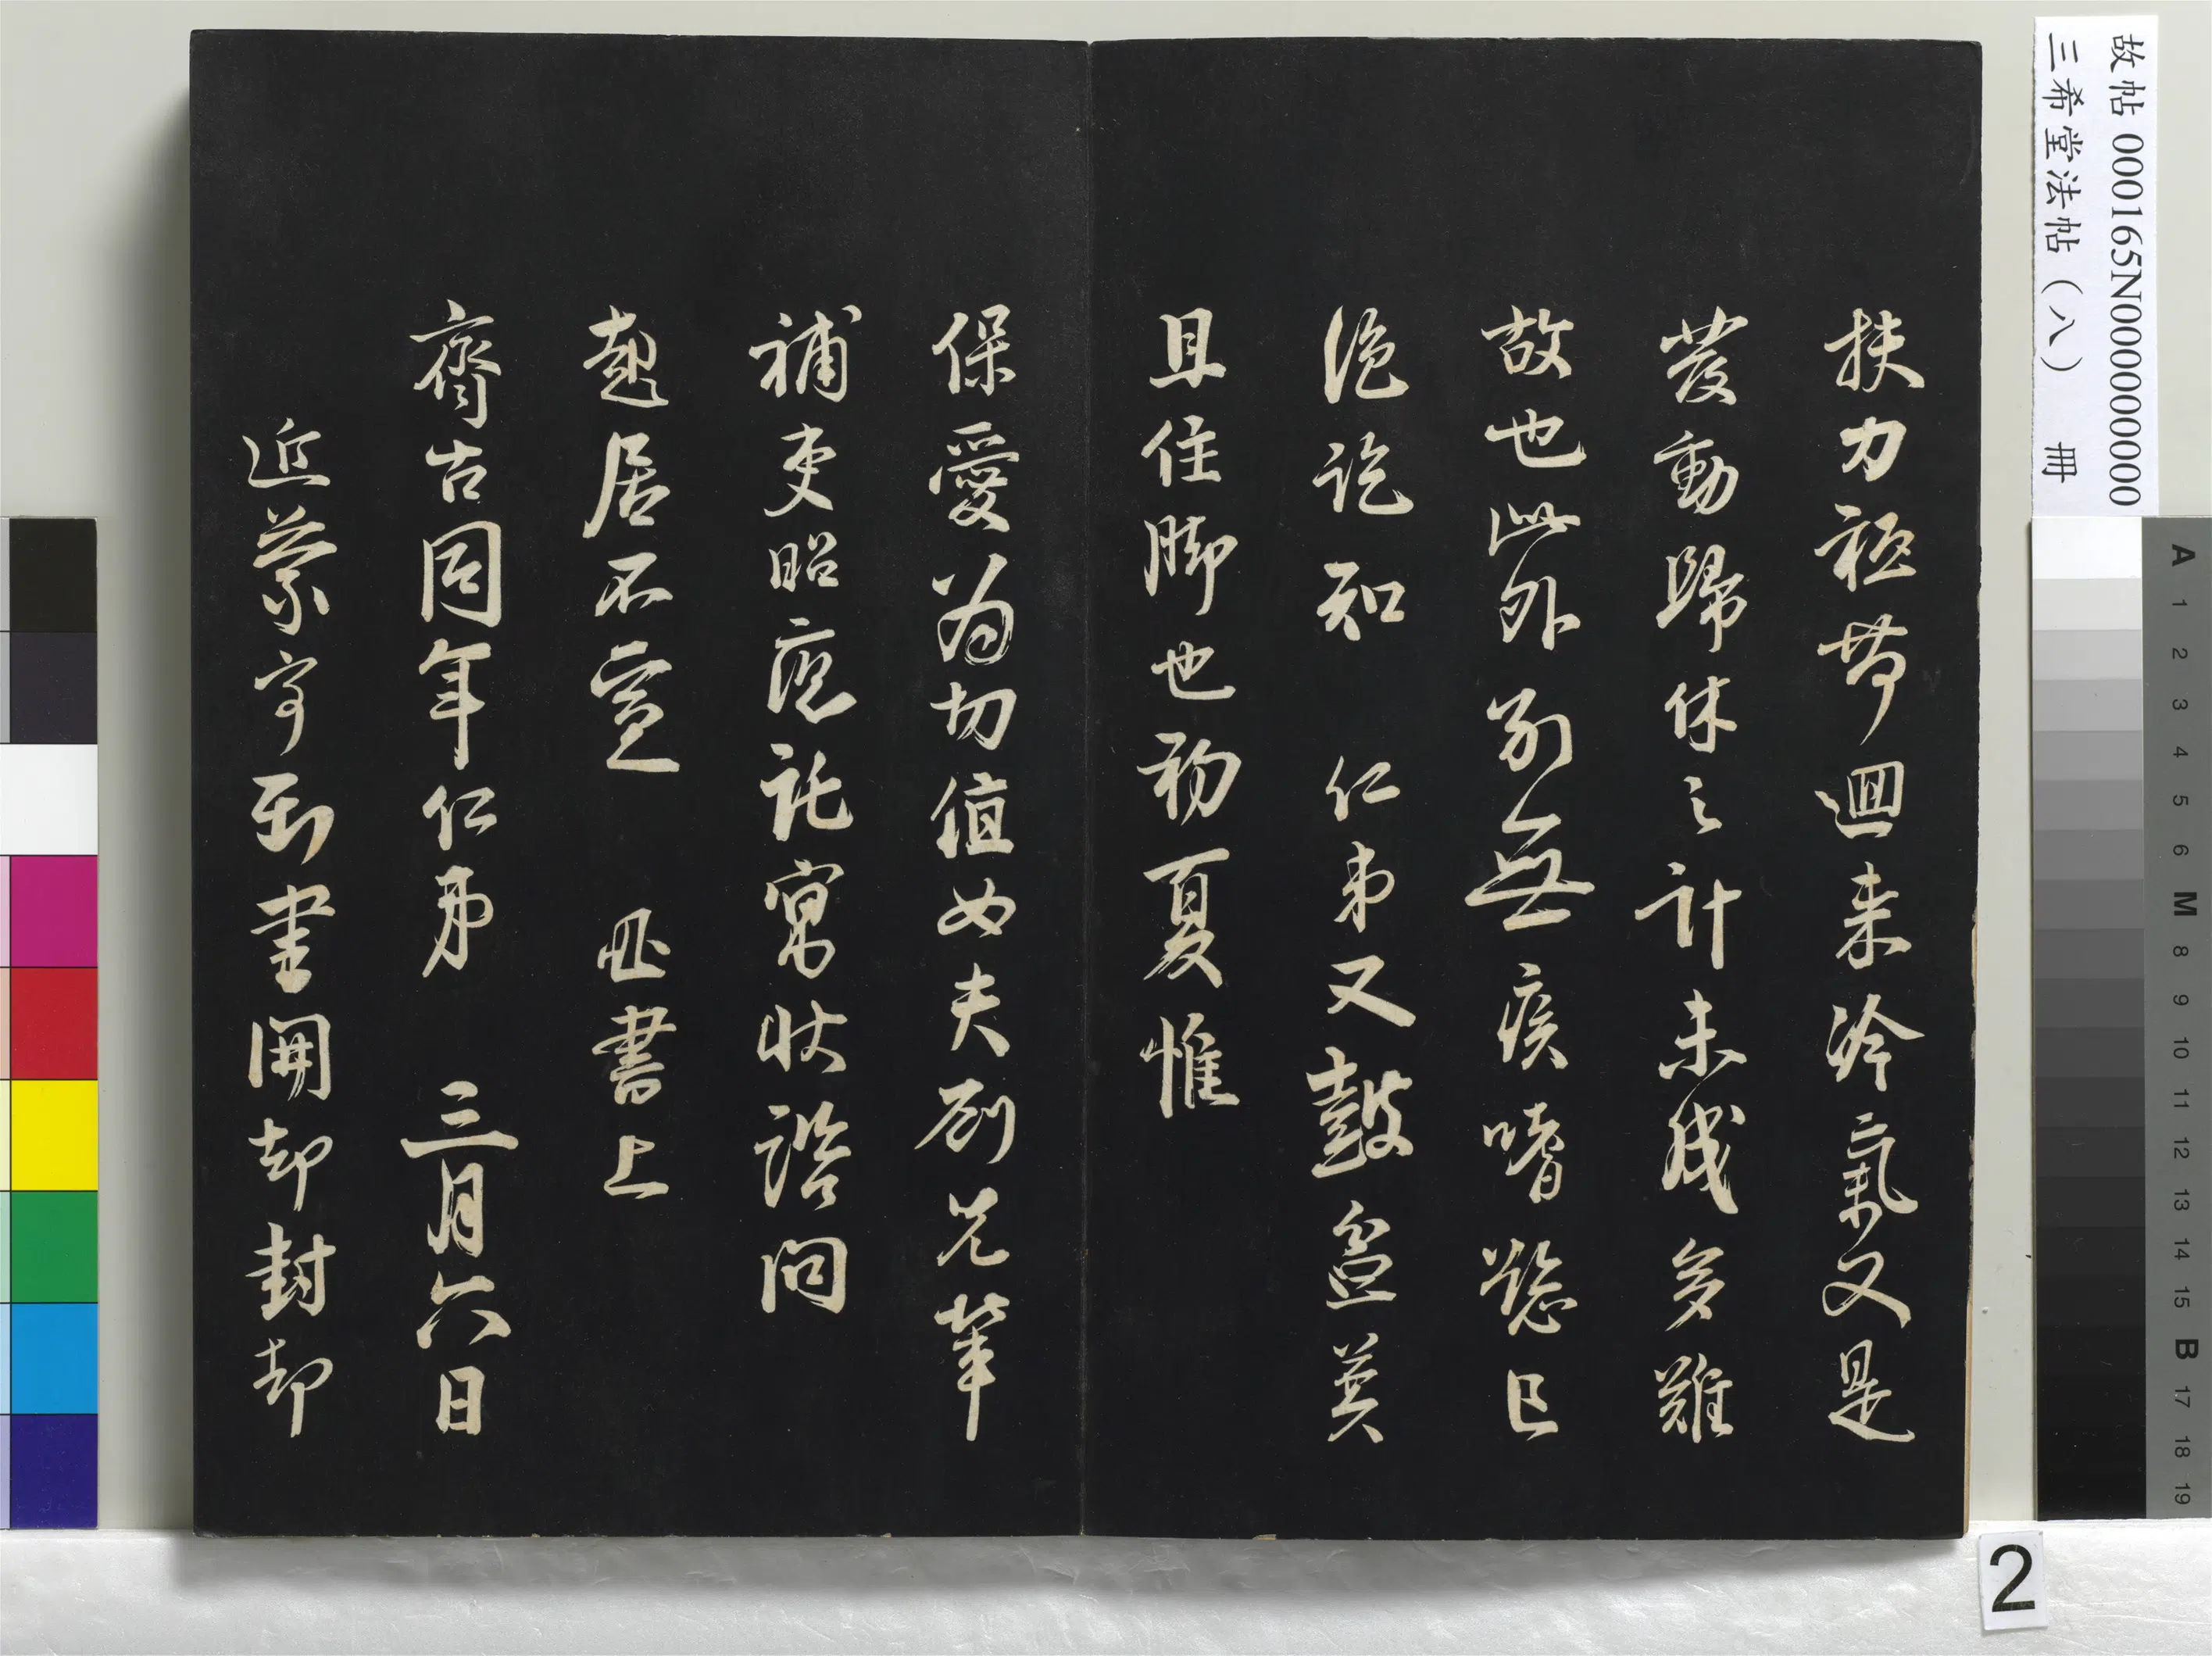 扶力祗帶迴來冷氣又是
發動歸休之計未成多難
故也此外別無疾嗜慾已
絕訖知 仁弟又鼓盆莫
且住腳也初夏惟
保愛為切值女夫劉兄
補吏昭應託寓狀諮問
起居不宣 書上
齊古同年仁弟 三月六日
近蒙寄到書開却封却
故帖 000165N000000000
三希堂法帖（八） 冊
A 1 2 3 4 5 6 M 8 9 10 11 12 13 14 15 B 17 18 19
2